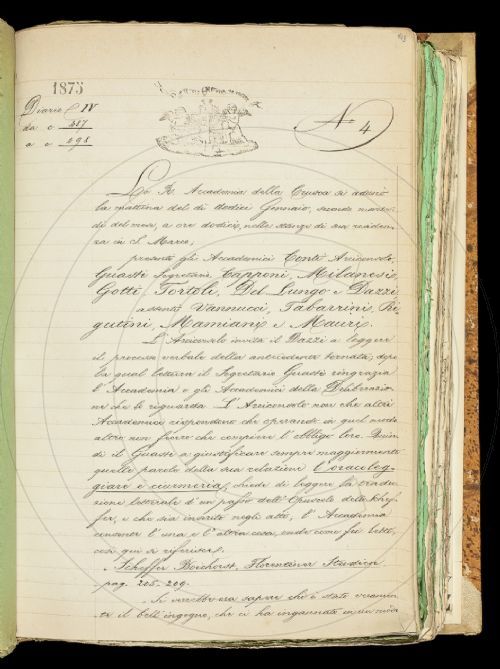 1875
Diario IV
da c 487
a c 498
N. 4
La R. Accademia della Crusca si adunò
la mattina del dì dodici Gennaio, secondo marte-
dì del mese, a ore dodici, nelle stanze di sua residen-
za in S. Marco,
presenti gli Accademici Conti Arciconsolo,
Guasti Segretario, Capponi, Milanesi,
Gotti, Tortoli, Del Lungo e Dazzi
assenti Vannucci, Tabarrini, Ri-
gutini, Mamiani e Mauri.
L'Arciconsolo invita il Dazzi a leggere
il processo verbale della antecedente tornata; dopo
la qual lettura il Segretario Guasti ringrazia
l'Accademia e gli Accademici della Deliberazio-
ne che lo riguarda. L'Arciconsolo non che altri
Accademici rispondono che operando in quel modo
altro non fecero che compiere l'obbligo loro. Quin-
di il Guasti a giustificare sempre maggiormente
quelle parole della sua relazione
chiede di leggere la tradu-
zione letterale d'un passo dell'Opuscolo dello Schef-
fer, e che sia inserito negli atti; l'Accademia
consente l'una e l'altra cosa, onde come fu letto,
così qui si riferisce.
Scheffer Boichorst, Florentiner Studien
pag. 205-209.
Si vorrebbe ora sapere chi è stato veramen-
te il bell'ingegno, che ci ha ingannata in un modo